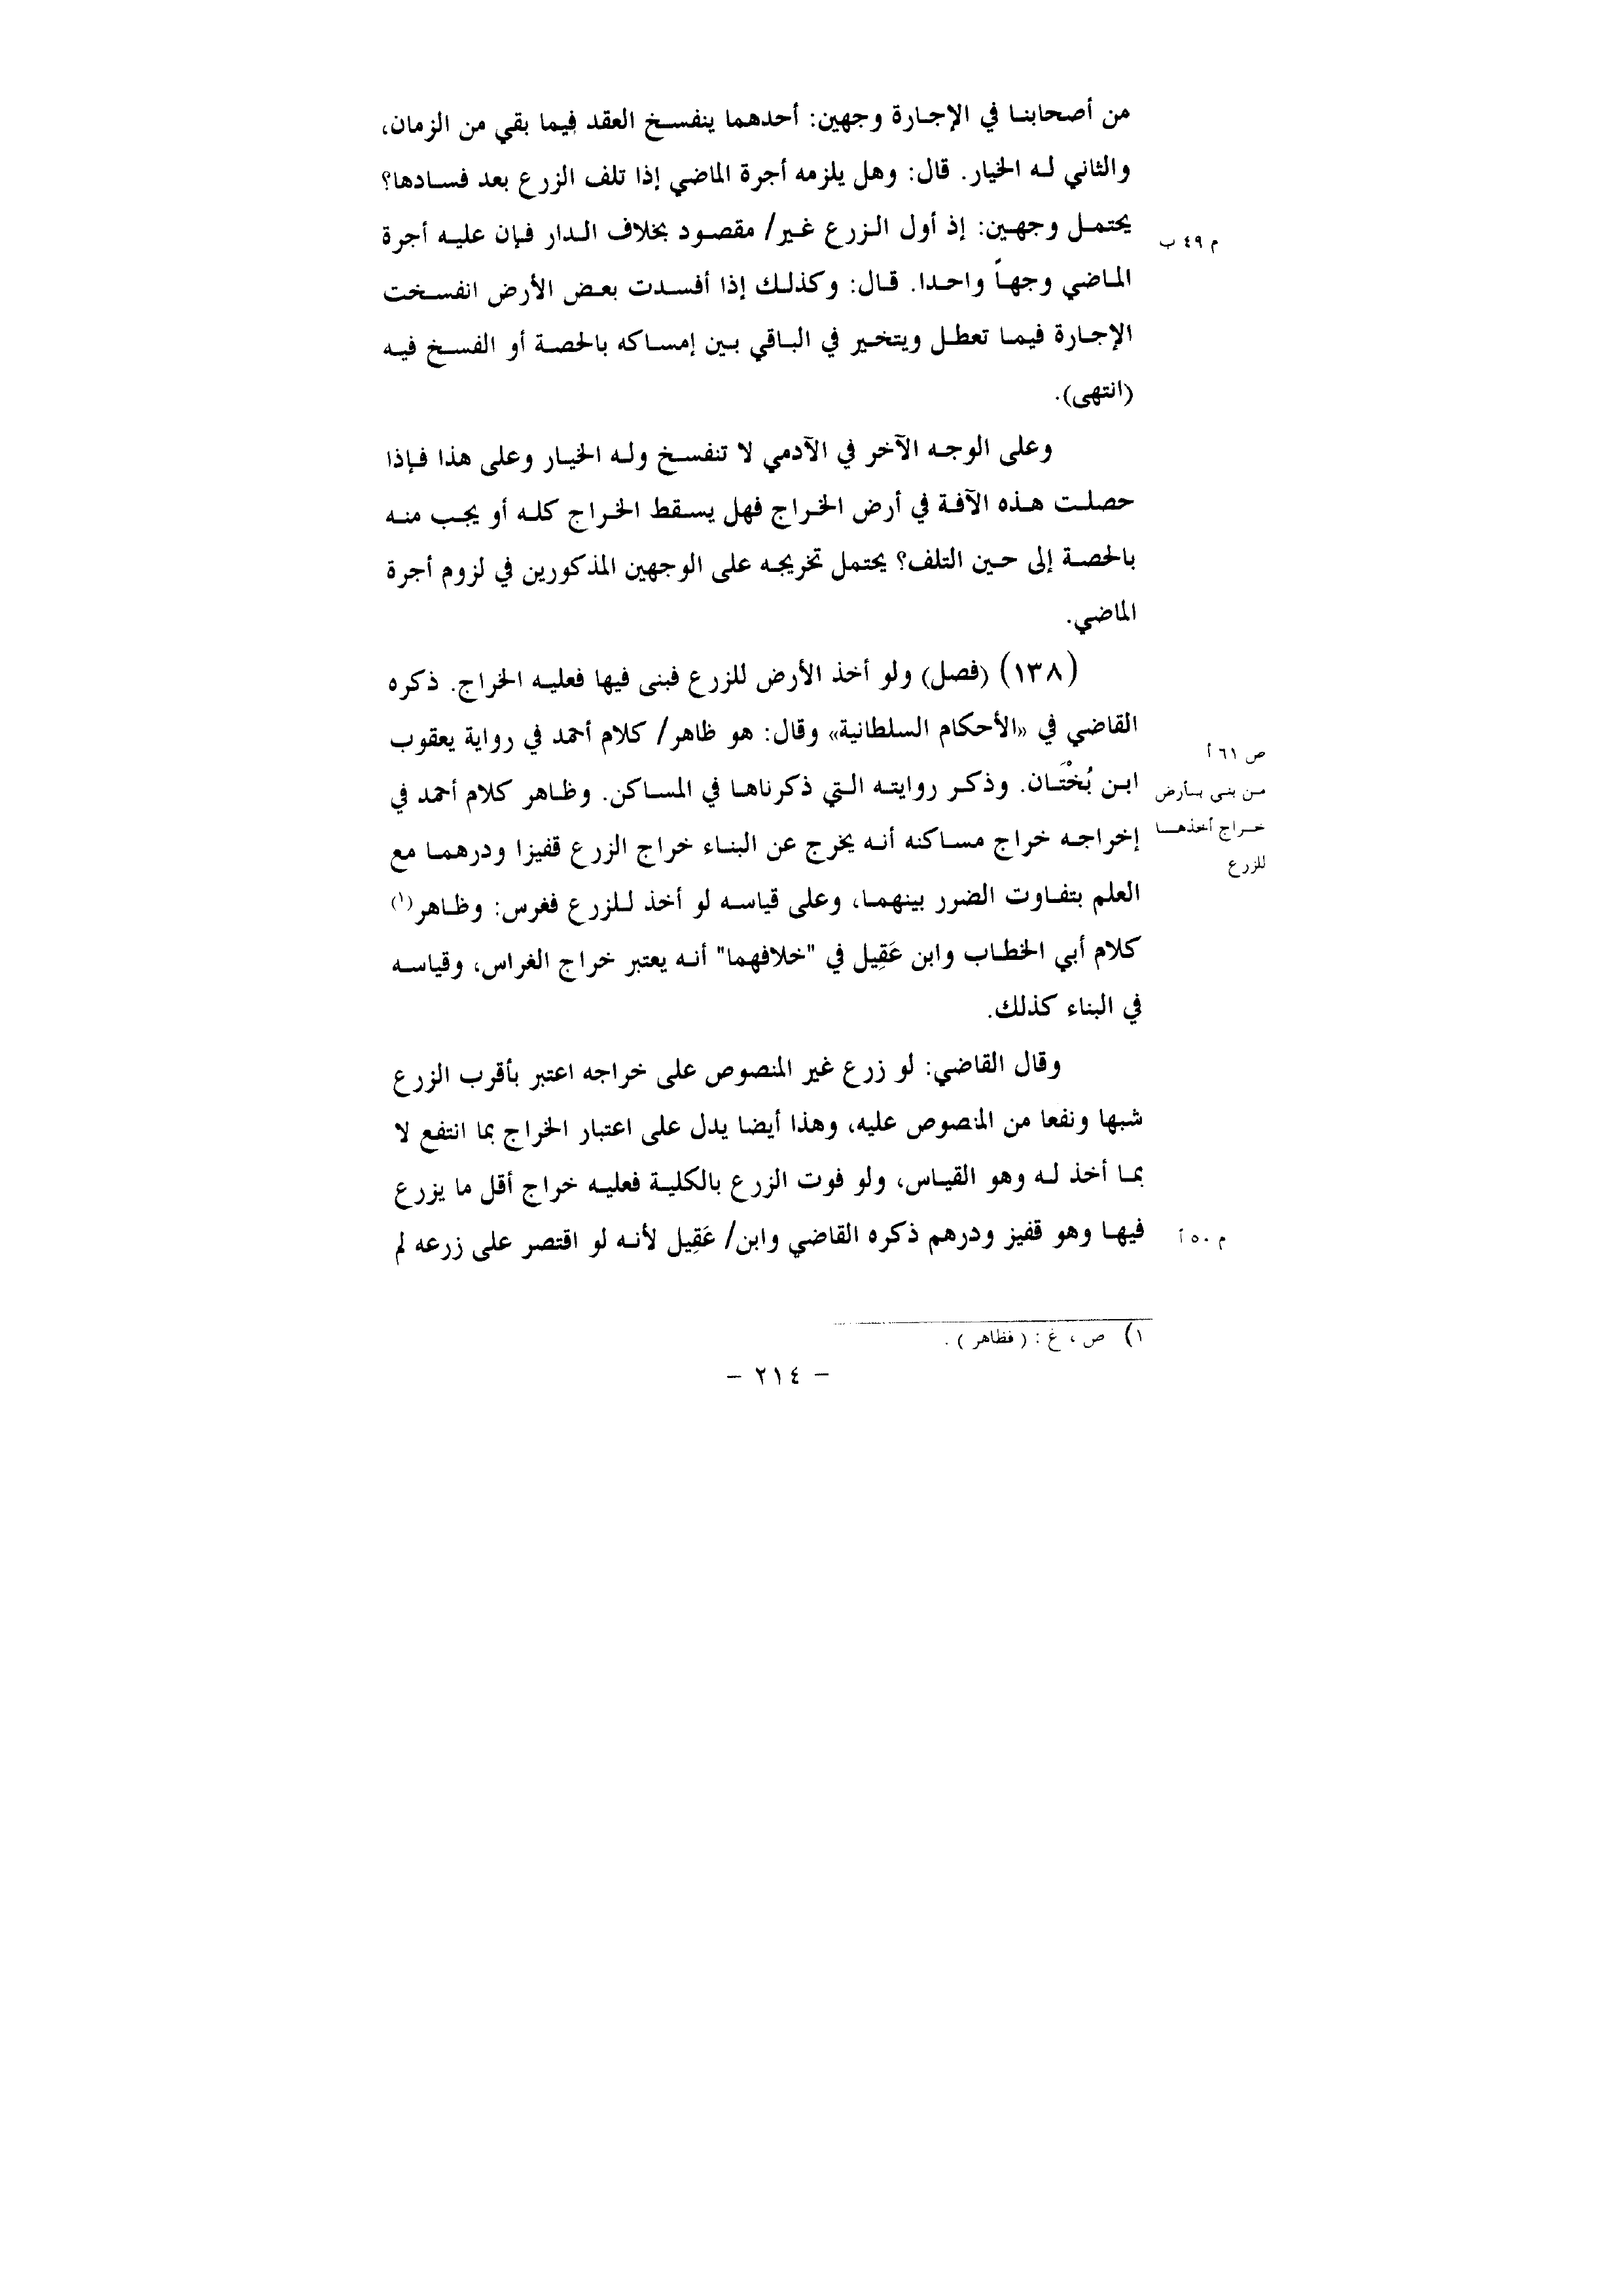 من أصحابنا في الإجارة وجهين: أحدهما ينفسخ العقد فيما بقي من الزمان،
والثاني له الخيار. قال: وهل يلزمه أجرة الماضي إذا تلف الزرع بعد فسادها؟
يحتمل وجهين: إذ أول الزرع غير/ مقصود بخلاف الدار فإن عليه أجرة
م ٤٩ ب
الماضي وجهاً واحدا. قال: وكذلك إذا أفسدت بعض الأرض انفسخت
الإجارة فيما تعطل ويتخير في الباقي بين إمساكه بالحصة أو الفسخ فيه
(انتهى).
وعلى الوجه الآخر في الآدمي لا تنفسخ وله الخيار وعلى هذا فإذا
حصلت هذه الآفة في أرض الخراج فهل يسقط الخراج كله أو يجب منه
بالحصة إلى حين التلف؟ يحتمل تخريجه على الوجهين المذكورين في لزوم أجرة
الماضي.
(١٣٨) (فصل) ولو أخذ الأرض للزرع فبنى فيها فعليه الخراج. ذكره
القاضي في «الأحكام السلطانية» وقال: هو ظاهر/ كلام أحمد في رواية يعقوب
ص ٦١ أ
ابن بُخْتَان. وذكر روايته التي ذكرناها في المساكن. وظاهر كلام أحمد في
من بنى بأرض
إخراجه خراج مساكنه أنه يخرج عن البناء خراج الزرع قفيزا ودرهما مع
خراج أخذها
للزرع
العلم بتفاوت الضرر بينهما، وعلى قياسه لو أخذ للزرع فغرس: وظاهر(١)
كلام أبي الخطاب وابن عَقِيل في "خلافهما" أنه يعتبر خراج الغراس، وقياسه
في البناء كذلك.
وقال القاضي: لو زرع غير المنصوص على خراجه اعتبر بأقرب الزرع
شبها ونفعا من المنصوص عليه، وهذا أيضا يدل على اعتبار الخراج بما انتفع لا
بما أخذ له وهو القياس، ولو فوت الزرع بالكلية فعليه خراج أقل ما يزرع
فيها وهو قفيز ودرهم ذكره القاضي وابن/ عَقِيل لأنه لو اقتصر على زرعه لم
م ٥٠ أ
١) ص ، غ : ( فظاهر ) .
– ٢١٤ –